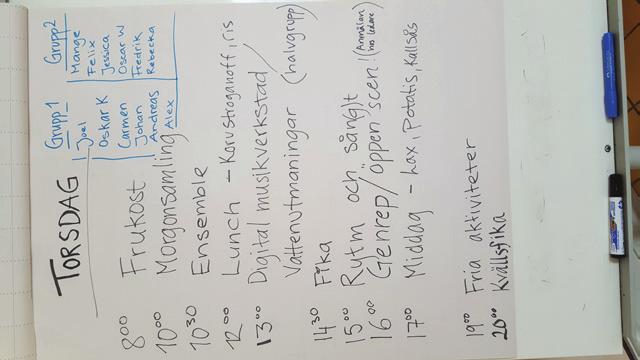 TORSDAG
Grupp 1
Joel
Oskar K
Carmen
Johan
Andreas
Alex
Grupp 2
Mange
Felix
Jessica
Oscar W
Fredrik
Rebecka
8:00 Frukost
10:00 Morgonsamling
10:30 Ensemble
12:00 Lunch - Korvstroganoff, ris
13:00 Digital musikverkstad/
Vattenutmaningar (halvgrupp)
14:30 Fika
15:00 Rytm och sånglyt
16:00 Genrep/öppen scen! (Anmälan hos ledare)
17:00 Middag - Lax, Potatis, Kallsås
19:00 Fria aktiviteter
20:00 Kvällsfika